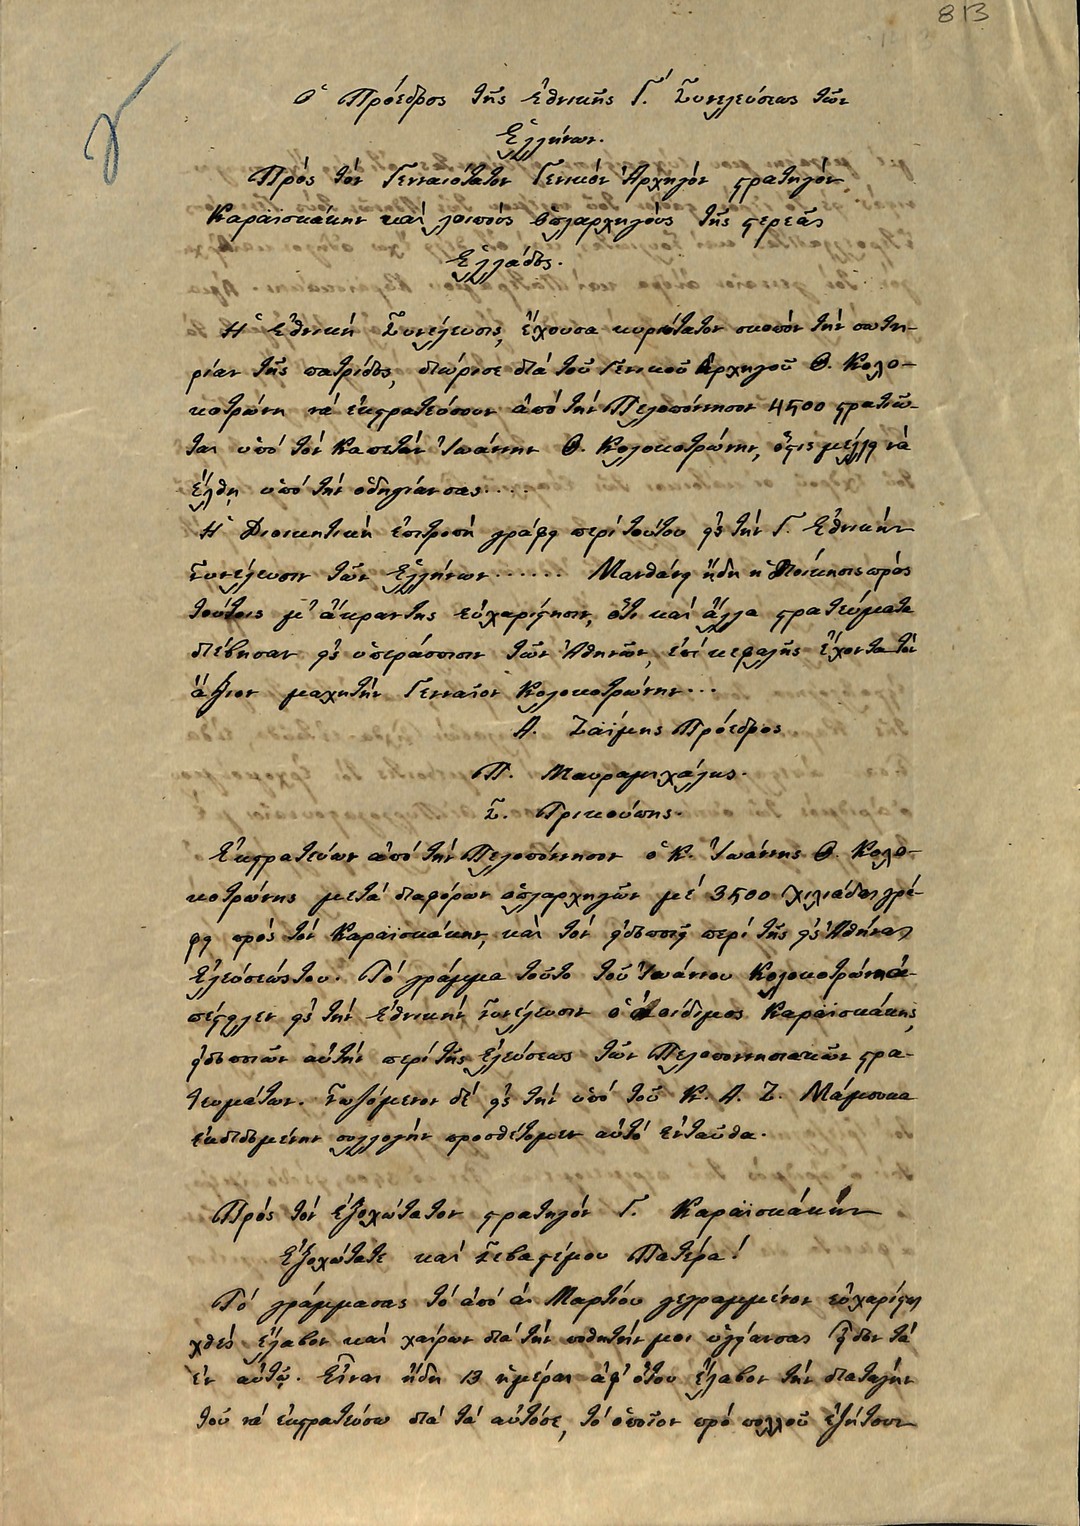 813
γ
Ὁ Πρόεδρος τῆς ἐθνικῆς Γ΄. Συνελεύσεως τῶν
Ἑλλήνων.
Πρός τόν Γενναιότατον Γενικόν Ἀρχηγόν στρατηγόν
Καραϊσκάκην καί λοιπούς ὁπλαρχηγούς τῆς στερεᾶς
Ἑλλάδος.
Ἡ Ἐθνική Συνέλευσις, ἔχουσα κυριώτατον σκοπόν τήν σωτη-
ρίαν τῆς πατρίδος, διώρισε διά τοῦ Γενικοῦ Ἀρχηγοῦ Θ. Κολο-
κοτρώνη νά ἐκστρατεύσουν ἀπό τήν Πελοπόννησον 4500 στρατιῶ-
ται ὑπό τόν Καπετάν Ἰωάννην Θ. Κολοκοτρώνην, ὅστις μέλλει νά
ἔλθῃ ὑπό τήν ὁδηγίαν σας....
Ἡ Διοικητική ἐπιτροπή γράφει περί τούτου εἰς τήν Γ. Ἐθνικήν
Συνέλευσιν τῶν Ἑλλήνων...... Μανθάνει ἤδη ἡ Διοίκησις πρός
τούτοις μ' ἄκραν της εὐχαρίστησιν, ὅτι καί ἄλλα στρατεύματα
διέβησαν εἰς ὑπεράσπισιν τῶν Ἀθηνῶν, ἐπί κεφαλῆς ἔχοντα τόν
ἄξιον μαχητήν Γενναῖον Κολοκοτρώνην...
Α. Ζαΐμης Πρόεδρος
Π. Μαυρομιχάλης.
Σ. Τρικούπης.
Ἐκστρατεύων ἀπό τήν Πελοπόννησον ὁ Κ. Ἰωάννης Θ. Κολο-
κοτρώνης μετά διαφόρων ὁπλαρχηγῶν μέ 3500 χιλιάδας γρά-
φει πρός τόν Καραϊσκάκην, καί τόν εἰδοποιεῖ περί τῆς εἰς Ἀθήνας
ἐλεύσεώς του. Τό γράμμα τοῦτο τοῦ Ἰωάννου Κολοκοτρώνη ἀ-
πέστειλεν εἰς τήν Ἐθνικήν Συνέλευσιν ὁ ἀοίδιμος Καραϊσκάκης,
εἰδοποιῶν αὐτήν περί τῆς ἐλεύσεως τῶν Πελοποννησιακῶν στρα-
τευμάτων. Σωζόμενον δέ εἰς τήν ὑπό τοῦ Κ. Α. Ζ. Μάμουκα
ἐκδιδομένην συλλογήν προσθέτομεν αὐτό ἐνταῦθα.
Πρός τόν ἐξοχώτατον στρατηγόν Γ. Καραϊσκάκην
Ἐξοχώτατε καί Σεβαστέ μου Πατέρα!
Τό γράμμα σας τό ἀπό ά. Μαρτίου γεγραμμένον εὐχαρίστως
χθές ἔλαβον καί χαίρων διά τήν ποθητήν μοι ὑγείαν σας εἶδον τά
ἐν αὐτῷ. Εἶναι ἤδη 13 ἡμέραι ἀφ' ὅτου ἔλαβον τήν διαταγήν
τοῦ νά ἐκστρατεύσω διά τά αὐτόσε, τό ὁποῖον πρό πολλοῦ ἐζήτουν